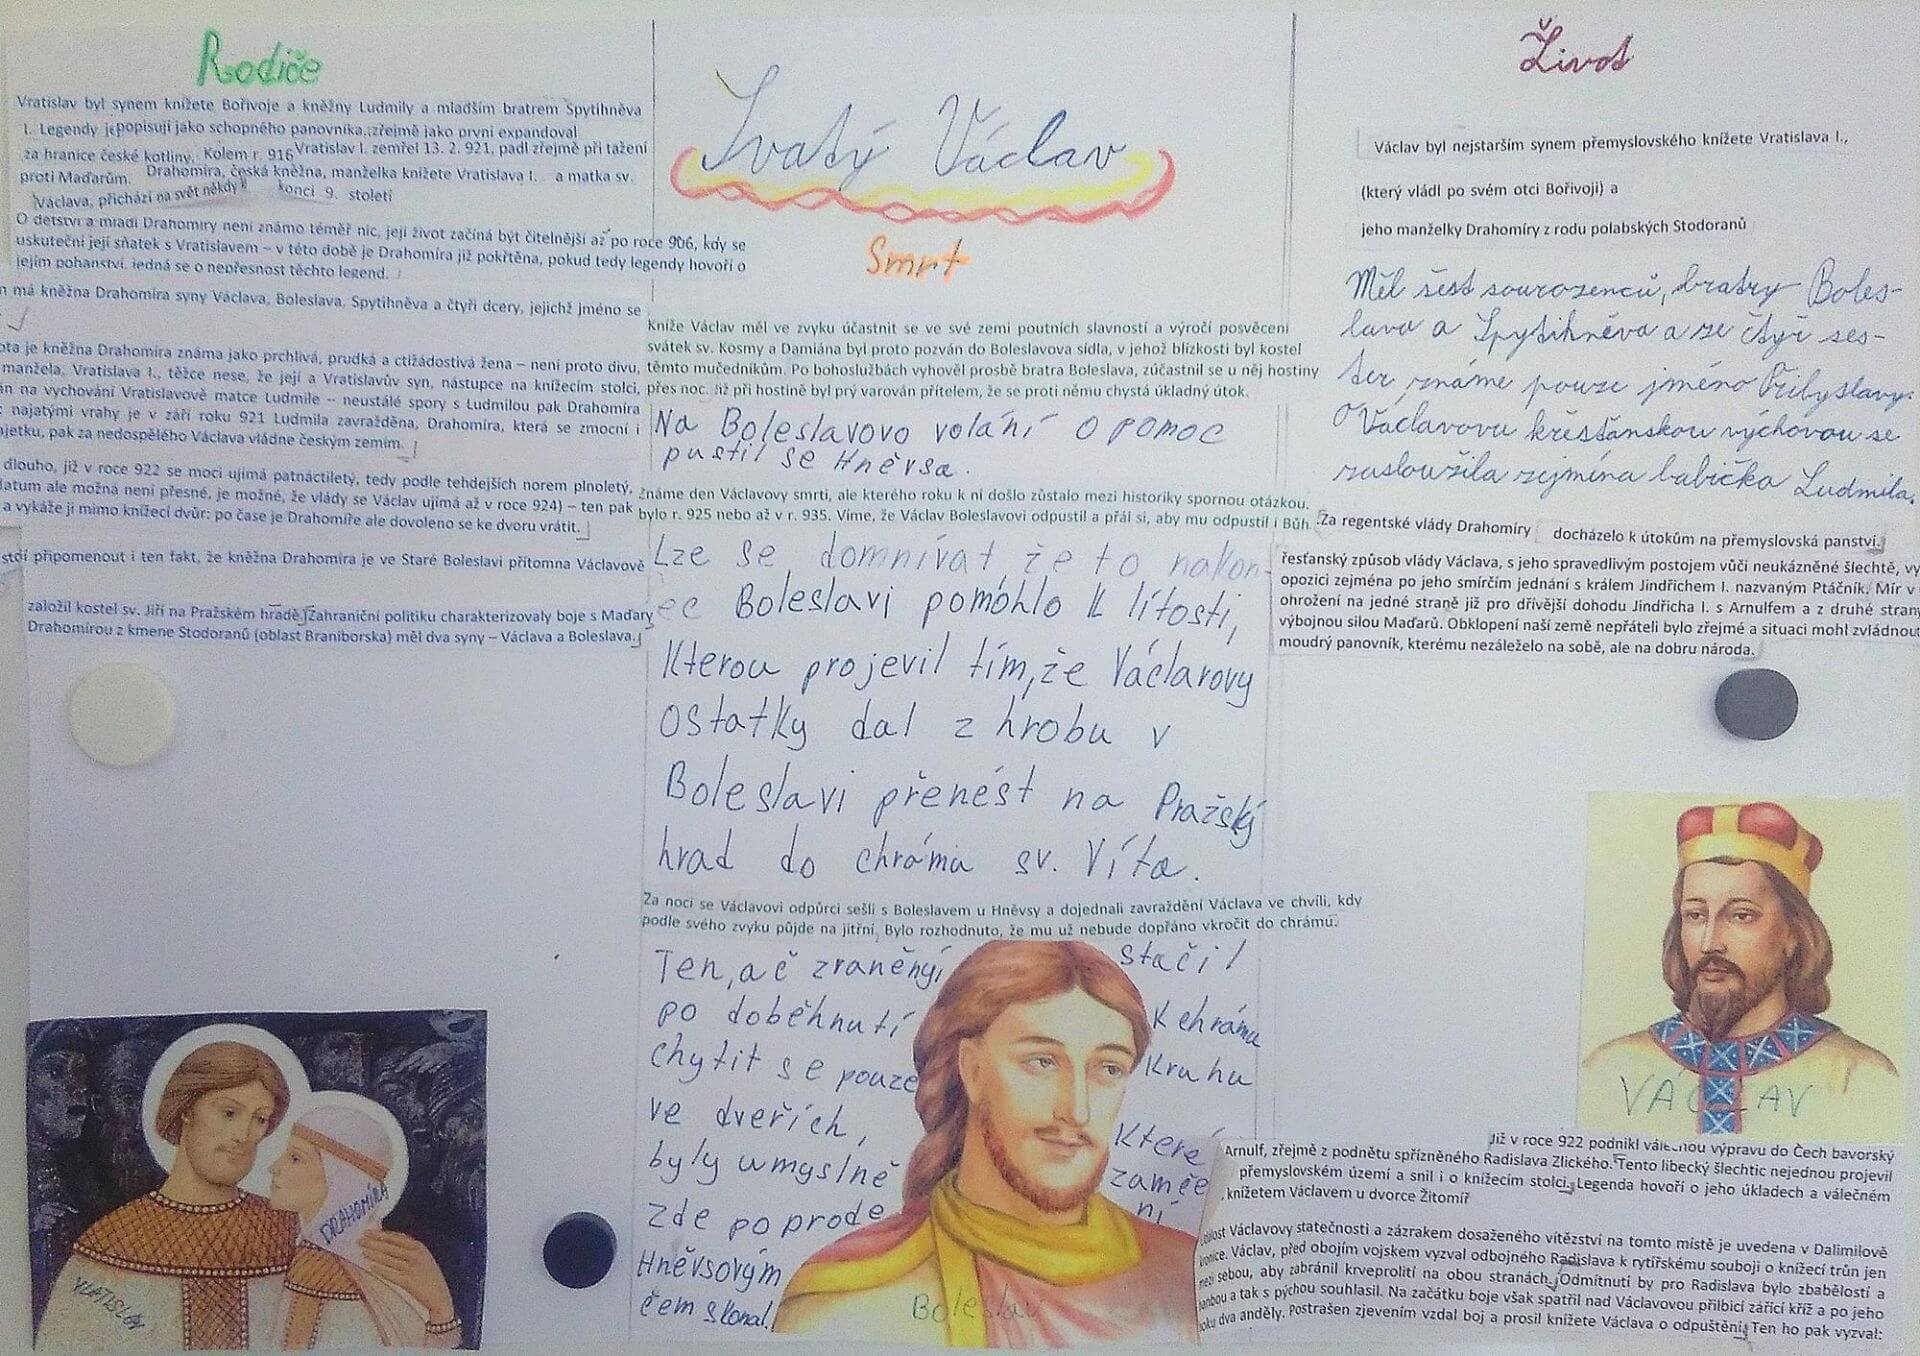 Rodiče
Vratislav byl synem knížete Bořivoje a kněžny Ludmily a mladším bratrem Spytihněva
I. Legendy je popisují jako schopného panovníka, zřejmě jako první expandoval
za hranice české kotliny. Kolem r. 916 Vratislav I. zemřel 13. 2. 921, padl zřejmě při tažení
proti Maďarům. Drahomíra, česká kněžna, manželka knížete Vratislava I. a matka sv.
Václava, přichází na svět někdy konci 9. století
O dětství a mládí Drahomíry není známo téměř nic, její život začíná být čitelnější až po roce 906, kdy se
uskuteční její sňatek s Vratislavem – v této době je Drahomíra již pokřtěna, pokud tedy legendy hovoří o
jejím pohanství, jedná se o nepřesnost těchto legend.
má kněžna Drahomíra syny Václava, Boleslava, Spytihněva a čtyři dcery, jejichž jméno se
ota je kněžna Drahomíra známa jako prchlivá, prudká a ctižádostivá žena – není proto divu,
manžela, Vratislava I., těžce nese, že její a Vratislavův syn, nástupce na knížecím stolci,
án na vychování Vratislavově matce Ludmile – neustálé spory s Ludmilou pak Drahomíra
najatými vrahy je v září roku 921 Ludmila zavražděna, Drahomíra, která se zmocní i
ajetku, pak za nedospělého Václava vládne českým zemím.
dlouho, již v roce 922 se moci ujímá patnáctiletý, tedy podle tehdejších norem plnoletý,
datum ale možná není přesné, je možné, že vlády se Václav ujímá až v roce 924) – ten pak
a vykáže ji mimo knížecí dvůr: po čase je Drahomíře ale dovoleno se ke dvoru vrátit.
stojí připomenout i ten fakt, že kněžna Drahomíra je ve Staré Boleslavi přítomna Václavově
založil kostel sv. Jiří na Pražském hradě. Zahraniční politiku charakterizovaly boje s Maďary
Drahomírou z kmene Stodoranů (oblast Braniborska) měl dva syny – Václava a Boleslava.
VLATISLAV
DRAHOMÍRA
Svatý Václav
Smrt
Kníže Václav měl ve zvyku účastnit se ve své zemi poutních slavností a výročí posvěcení
svátek sv. Kosmy a Damiána byl proto pozván do Boleslavova sídla, v jehož blízkosti byl kostel
těmto mučedníkům. Po bohoslužbách vyhověl prosbě bratra Boleslava, zúčastnil se u něj hostiny
přes noc. Již při hostině byl prý varován přítelem, že se proti němu chystá úkladný útok.
Na Boleslavovo volání o pomoc
pustil se Hněvsa.
Známe den Václavovy smrti, ale kterého roku k ní došlo zůstalo mezi historiky spornou otázkou.
bylo r. 925 nebo až v r. 935. Víme, že Václav Boleslavovi odpustil a přál si, aby mu odpustil i Bůh.
Lze se domnívat že to nakon-
ec Boleslavi pomohlo k lítosti,
Kterou projevil tím, že Václavovy
ostatky dal z hrobu v
Boleslavi přenést na Pražský
hrad do chrámu sv. Víta.
Za noci se Václavovi odpůrci sešli s Boleslavem u Hněvsy a dojednali zavraždění Václava ve chvíli, kdy
podle svého zvyku půjde na jitřní. Bylo rozhodnuto, že mu už nebude dopřáno vkročit do chrámu.
Ten, ač zraněný, stačil
po doběhnutí K chrámu
chytit se pouze Kruhu
ve dveřích, Které
byly úmyslně zamče
zde po prode ní
Hněvsovým
čem skonal.
Boleslav
Život
Václav byl nejstarším synem přemyslovského knížete Vratislava I.,
(který vládl po svém otci Bořivoji) a
jeho manželky Drahomíry z rodu polabských Stodoranů
Měl šest sourozenců, bratry Boles-
lava a Spytihněva a ze čtyř ses-
ter známe pouze jméno Přibyslavy.
O Václavovu křesťanskou výchovou se
zasloužila zejména babička Ludmila.
Za regentské vlády Drahomíry docházelo k útokům na přemyslovská panství.
řesťanský způsob vlády Václava, s jeho spravedlivým postojem vůči neukázněné šlechtě, vy
opozici zejména po jeho smírčím jednání s králem Jindřichem I. nazvaným Ptáčník. Mír v
ohrožení na jedné straně již pro dřívější dohodu Jindřicha I. s Arnulfem a z druhé strany
výbojnou silou Maďarů. Obklopení naší země nepřáteli bylo zřejmé a situaci mohl zvládnout
moudrý panovník, kterému nezáleželo na sobě, ale na dobru národa.
VÁCLAV
Již v roce 922 podnikl válečnou výpravu do Čech bavorský
Arnulf, zřejmě z podnětu spřízněného Radislava Zlického. Tento libecký šlechtic nejednou projevil
přemyslovském území a snil i o knížecím stolci. Legenda hovoří o jeho úkladech a válečném
knížetem Václavem u dvorce Žitomíř
Václavovy statečnosti a zázrakem dosaženého vítězství na tomto místě je uvedena v Dalimilově
Václav, před obojím vojskem vyzval odbojného Radislava k rytířskému souboji o knížecí trůn jen
mezi sebou, aby zabránil krveprolití na obou stranách. Odmítnutí by pro Radislava bylo zbabělostí a
hanbou a tak s pýchou souhlasil. Na začátku boje však spatřil nad Václavovou přilbicí zářící kříž a po jeho
boku dva anděly. Postrašen zjevením vzdal boj a prosil knížete Václava o odpuštění. Ten ho pak vyzval: